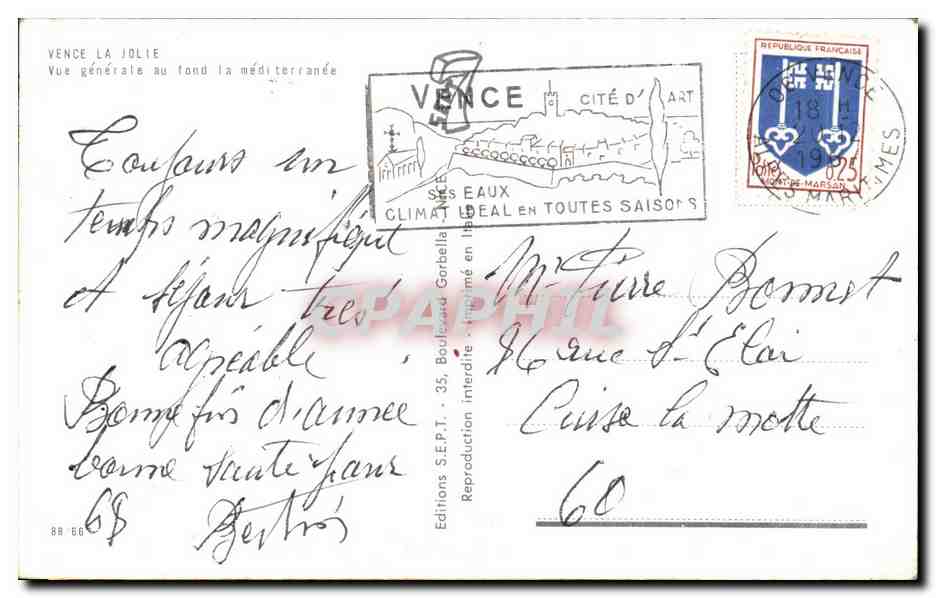 VENCE LA JOLIE
Vue générale au fond la méditerranée
Toujours un
temps magnifique
et séjour très
agréable
Bonne fin d'année
bonne santé pour
68
88/66
Editions S.E.P.T. - 35, Boulevard Gorbella - NICE
Reproduction interdite - Imprimé en Italie
SEPT
VENCE
CITÉ D'ART
SES EAUX
CLIMAT IDEAL EN TOUTES SAISONS
REPUBLIQUE FRANÇAISE
Postes 0,25
MONT-DE-MARSAN
06 VENCE
18 H
ALPES MARITIMES
CPAPHIL
Mr Pierre Bonnet
86 rue St Eloi
Cuise la motte
60